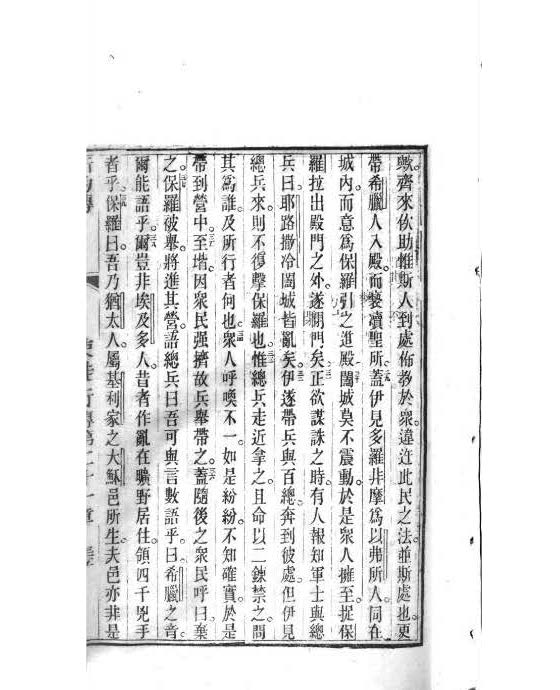 歟。齊來佽助惟斯人到處佈教於衆。違迕此民之法並斯處也。更
帶希臘人入殿。而褻瀆聖所。蓋伊見多羅非摩爲以弗所人。同在
城內。而意爲保羅引之進殿闔城莫不震動。於是衆人擁至捉保
羅拉出殿門之外。遂閉門矣。正欲謀誅之時。有人報知軍士與總
兵曰。耶路撒冷闔城皆亂矣。伊遂帶兵與百總。奔到彼處。但伊見
總兵來。則不復擊保羅也。惟總兵走近拿之。且命以二鍊禁之。問
其爲誰。及所行者何也。衆人呼喚不一。如是紛紛。不知確實。於是
帶到營中。至堦。因衆民强擠。故兵舉帶之。蓋隨後之衆民呼曰。棄
之。保羅被舉。將進其營。語總兵曰。吾可與言數語乎。曰。希臘之音。
爾能語乎。爾豈非埃及多人。昔者作亂。在曠野居住。領四千兇手
者乎。保羅曰。吾乃猶太人。屬基利家之大穌邑所生。夫邑亦非是
行傳第二十一章